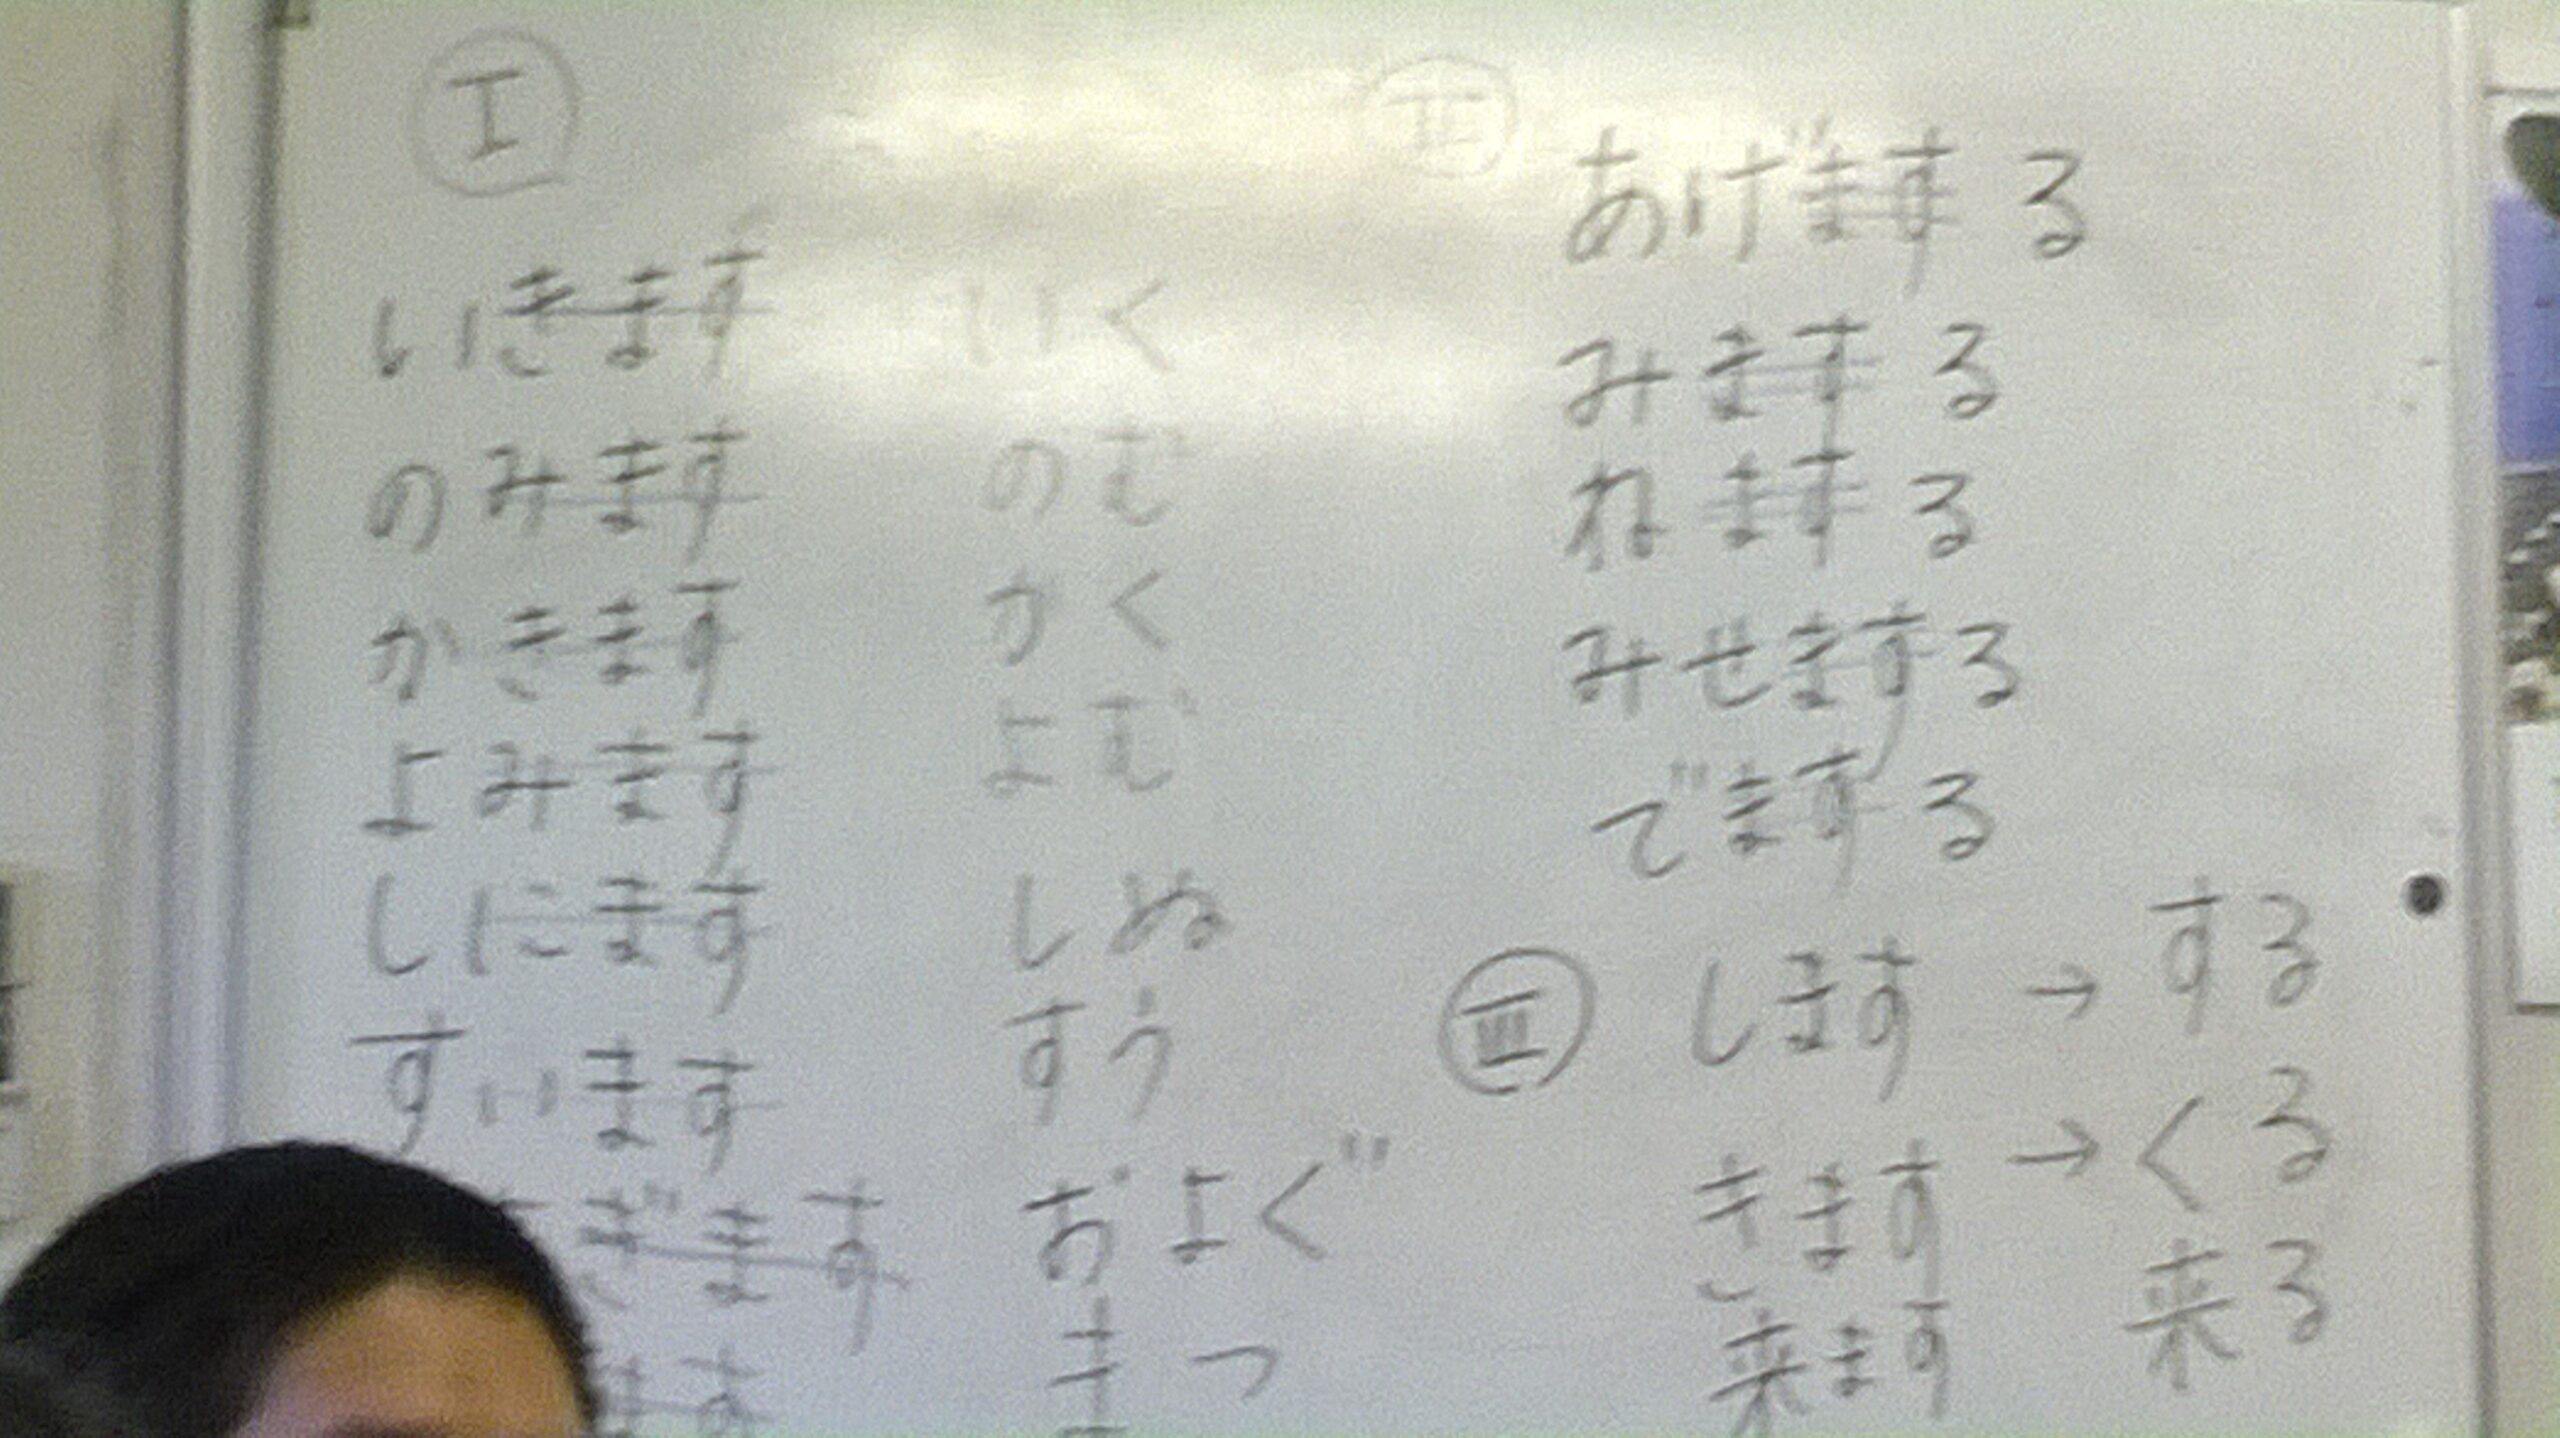 Ⅰ
いきます いく
のみます のむ
かきます かく
よみます よむ
しにます しぬ
すいます すう
ぎます およぐ
ます まつ
Ⅱ
あげます る
みます る
ねます る
みせます る
でます る
Ⅲ
します → する
きます → くる
来ます 来る